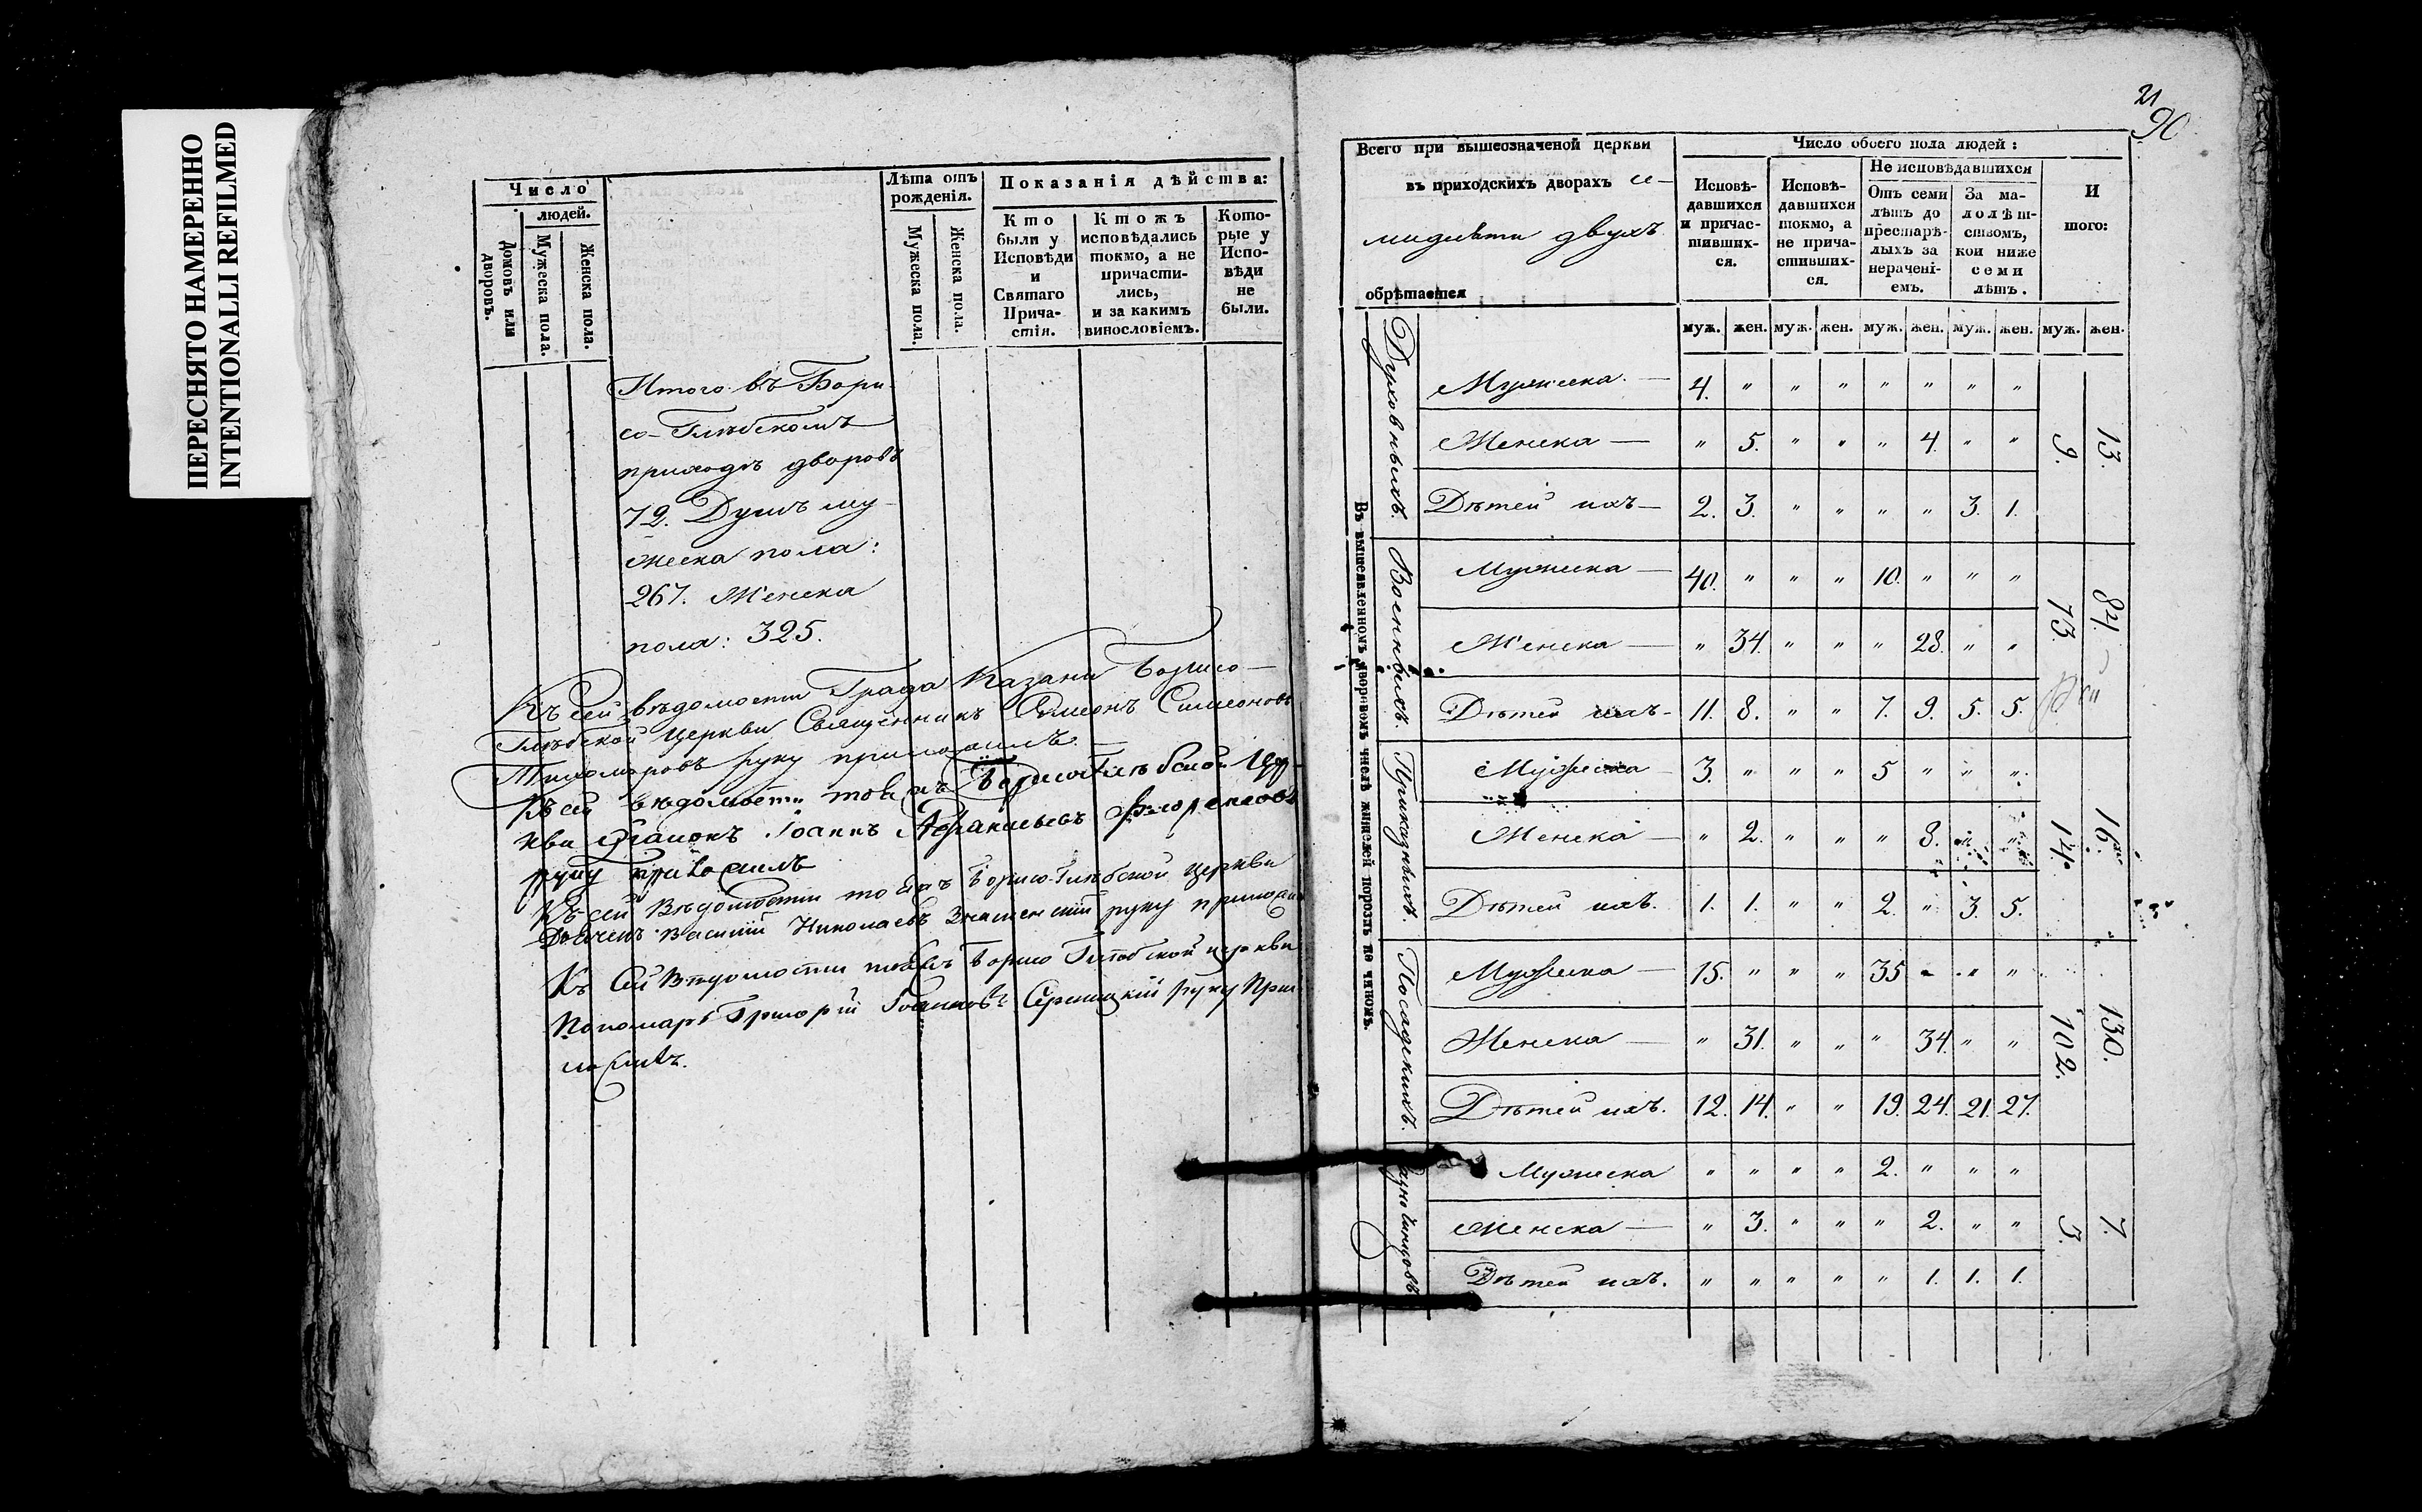 ПЕРЕСНЯТО НАМЕРЕННО
INTENTIONALLI REFILMED
Число
людей.
Домовъ или дворовъ.
Мужеска пола.
Женска пола.
Лѣта отъ
рожденія.
Мужеска пола.
Женска пола.
Показанія дѣйства:
Кто
были у
Исповѣди
и
Святаго
Прича-
стія.
Ктожъ
исповѣдались
токмо, а не
причасти-
лись,
и за какимъ
винословіемъ.
Кото-
рые у
Испо-
вѣди
не
были.
Итого въ Бори-
со-Глѣбскомъ
приходѣ дворовъ
72. Душъ му-
жеска пола:
267. Женска
пола: 325.
Къ сей вѣдомости Града Казани Борисо-
Глѣбской Церкви Священникъ Симеонъ Симеоновъ
Тихомировъ руку приложилъ.
Къ сей вѣдомости той жъ Борисоглѣбской Цер-
кви Діаконъ Іоаннъ Афанасьевъ
руку приложилъ
Къ сей Вѣдомости той жъ Борисо-Глѣбской Церкви
Дьячекъ Василій Николаевъ Знаменскій руку приложилъ
Къ сей Вѣдомости тояжъ Борисо Глѣбской церкви
Пономарь Григорій Іоанновъ руку При-
ложилъ.
21
90
Всего при вышеозначеной церкви
въ приходскихъ дворахъ се-
мидесяти двухъ
обрѣтается
Число обоего пола людей:
Исповѣ-
давшихся
и причас-
тивших-
ся.
Исповѣ-
давшихся
токмо, а
не прича-
стивших-
ся.
Не исповѣдавшихся
Отъ семи
лѣтъ до
престарѣ-
лыхъ за
нерачені-
емъ.
За ма-
лолѣт-
ствомъ,
кои ниже
семи
лѣтъ.
И
того:
муж. жен. муж. жен. муж. жен. муж. жен. муж. жен.
Въ вышеявленномъ дворовомъ числѣ жителей порознь по чиномъ.
Духовныхъ.
Мужеска. — 4. " " " " " " "
Женска — " 5. " " " 4. " "
Дѣтей ихъ — 2. 3. " " " " 3. 1.
9. 13.
Военныхъ.
Мужеска — 40. " " " 10. " " "
Женска — " 34. " " " 28. " "
Дѣтей ихъ - 11. 8. " " 7. 9. 5. 5.
73. 84.
Приказныхъ.
Мужеска — 3. " " " 5 " " "
Женска — " 2. " " " 8. " "
Дѣтей ихъ. 1. 1. " " 2. " 3. 5.
14. 16.
Посадскихъ.
Мужеска — 15. " " " 35 " " "
Женска — " 31. " " " 34. " "
Дѣтей ихъ. 12. 14. " " 19. 24. 21. 27.
102. 130.
Разночинцовъ
Мужеска " " " " 2. " " "
Женска — " 3. " " " 2. " "
Дѣтей ихъ. " " " " " 1. 1. 1.
3. 7.